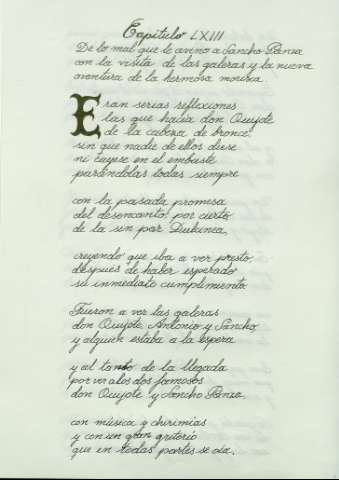 Capítulo LXIII
De lo mal que le avino a Sancho Panza
con la visita de las galeras y la nueva
aventura de la hermosa morisca.
Eran serias reflexiones
las que hacía don Quijote
de la cabeza de bronce,
sin que nadie de ellos diese
ni cayese en el embuste
parándolas todas siempre
con la pasada promesa
del desencanto, por cierto
de la sin par Dulcinea,
creyendo que iba a ver presto,
después de haber esperado
su inmediato cumplimiento.
Fueron a ver las galeras
don Quijote, Antonio y Sancho,
y alguien estaba a la espera
y al tanto de la llegada
por ver a los dos famosos
don Quijote y Sancho Panza.
con música y chirimías
y con un gran griterío
que en todas partes se oía.